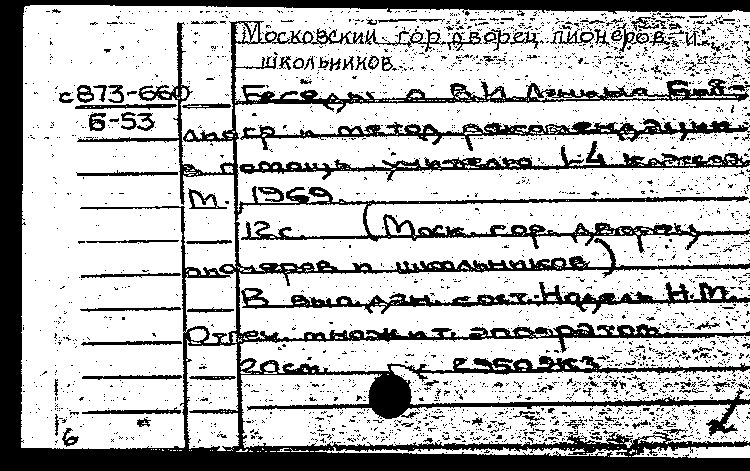 Московский гор. дворец пионеров и
школьников.
с873-660
Б-53
Беседы о В.И. Ленине. Биб-
лиогр. и метод. рекомендации
в помощь учителю 1-4 классов.
М., 1969.
12 с. (Моск. гор. дворец
пионеров и школьников)
В вып. дан. сост.: Надель Н.М.
Отпеч. множит. аппаратом
20 см.
6